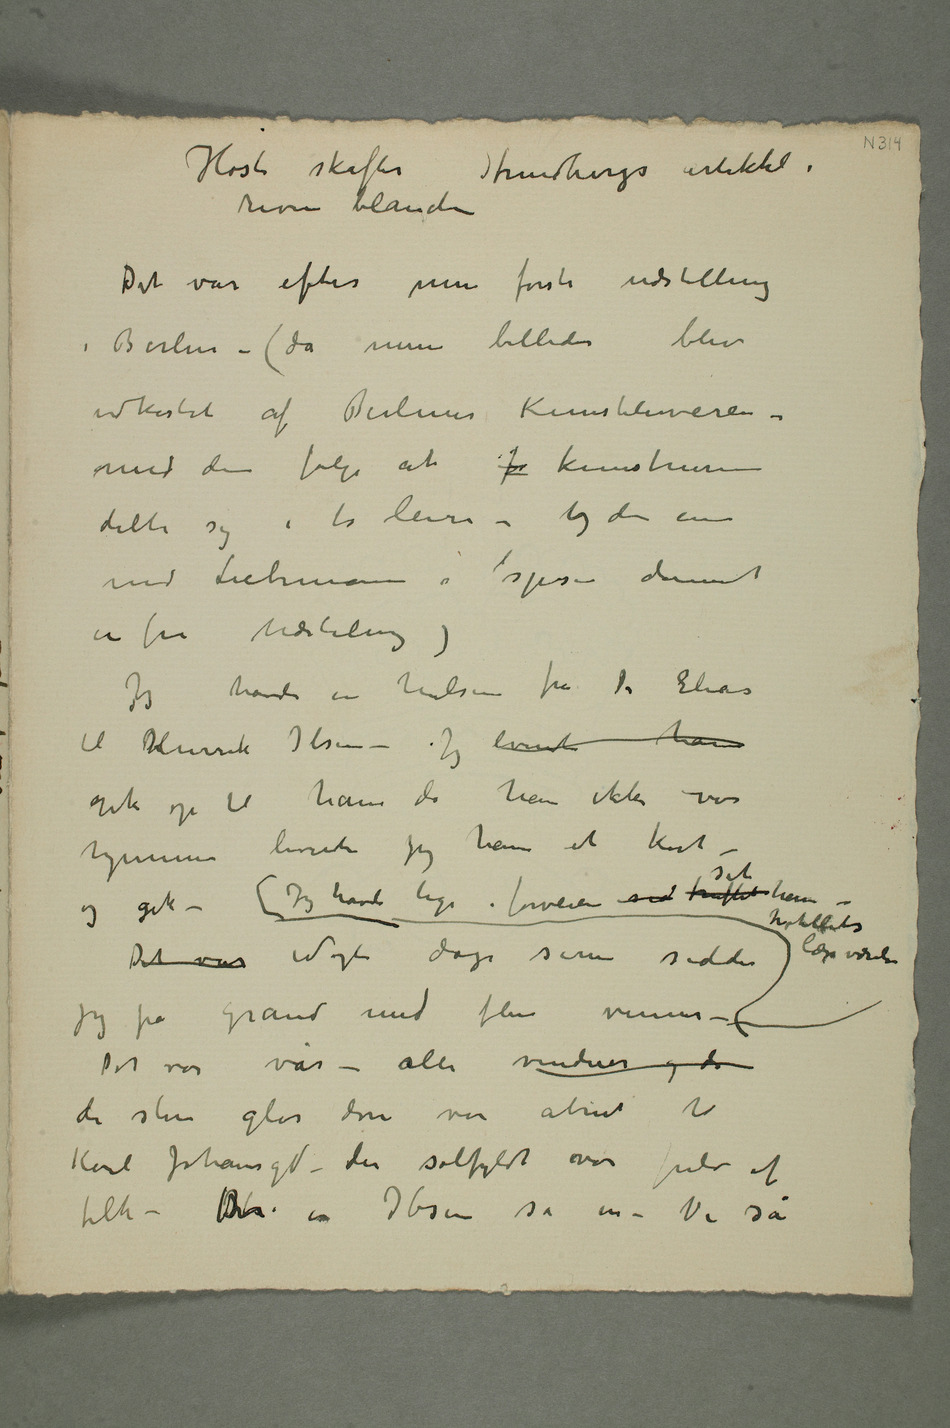 N 314
Høst skaffer Strindbergs artikkel i
revue blanche
Det var efter min første udstilling
i Berlin – (da mine billeder blev
udkastet af Berliner Kunstlerverein –
med den følge at fo kunstnerne
delte sig i to leire – og den ene
med Liebermann i spisen dannet
en fri Udstilling)
Jeg havde en hilsen fra Dr Elias
til Henrik Ibsen – Jeg leverte ham
gik op til ham da han ikke var
hjemme leverte jeg ham et kort –
og gik – (Jeg havde lige i forveien sed truffet set ham –
hotellets
læseværelse
Det var Nogle dage senere sidder
jeg på grand med flere venner –
Det var vår – alle vinduer og dø
de store glas døre var åbnet til
Karl Johansgd – der solfyldt var fuld af
folk – Ibsen så ind – Vi så